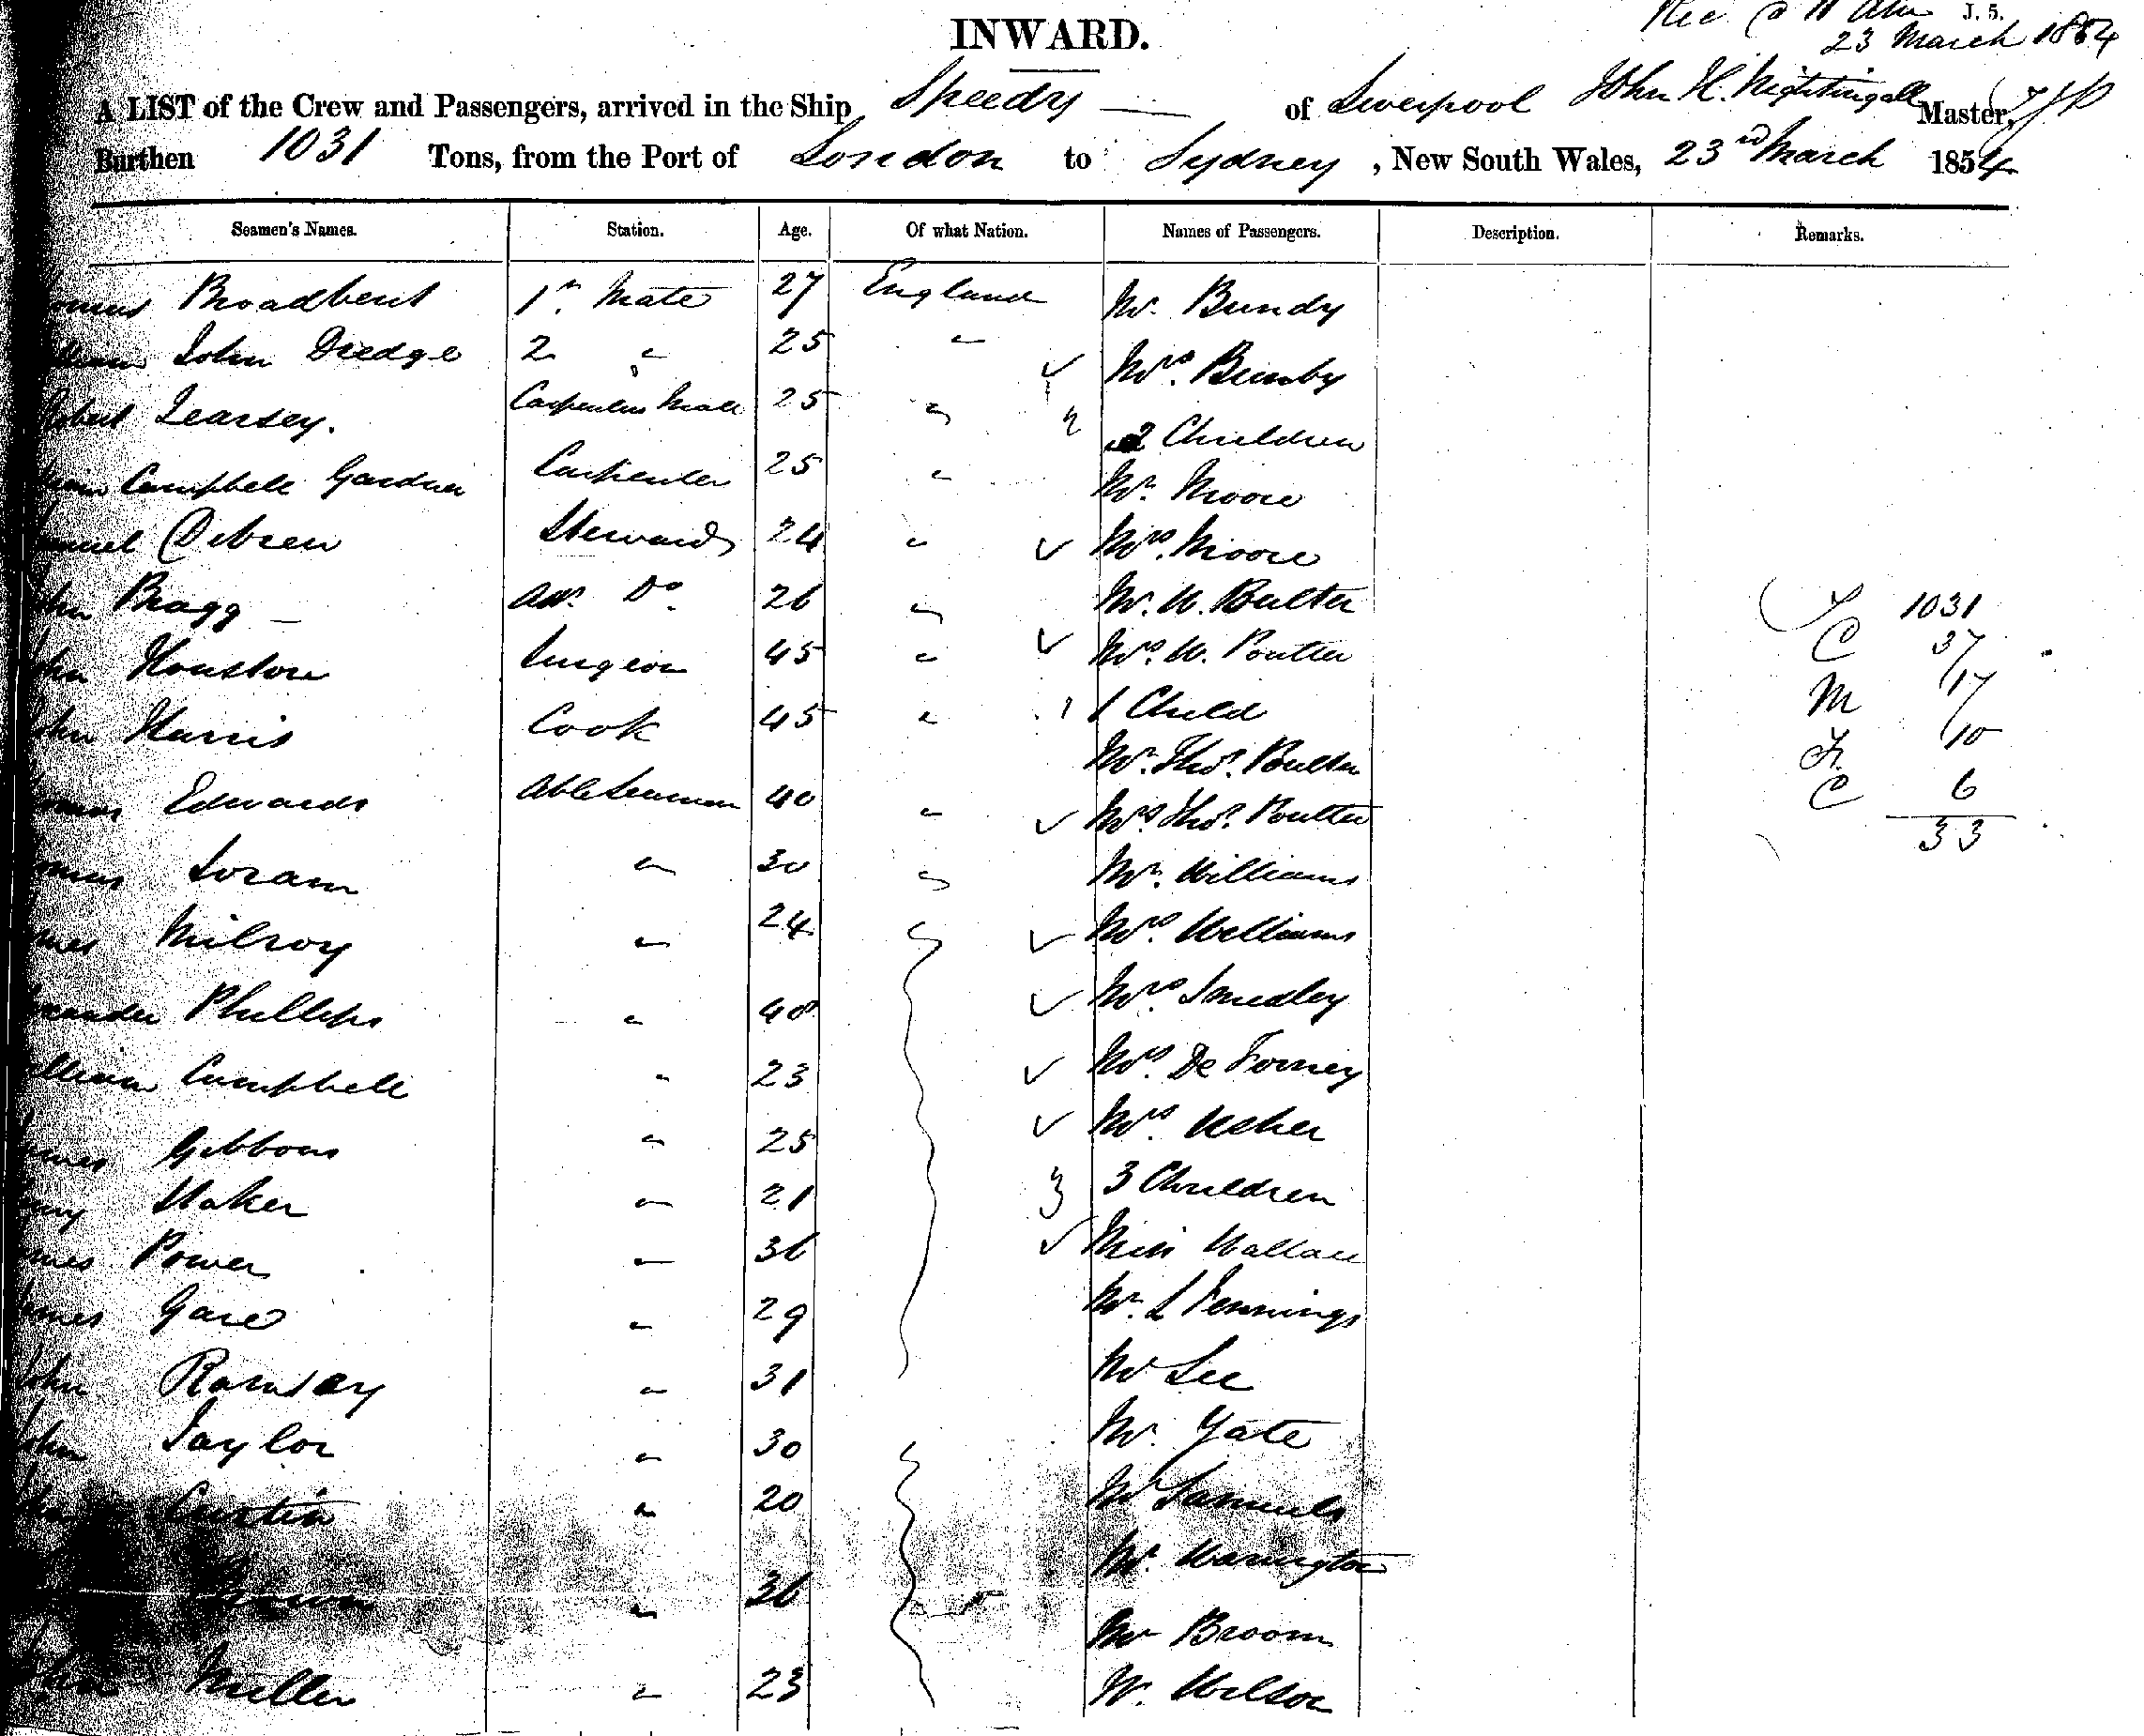 INWARD.
Rec @ 11 am J. 5.
23 March 1854
A LIST of the Crew and Passengers, arrived in the Ship Speedy — of Liverpool John H. Nightingall Master,
Burthen 1031 Tons, from the Port of London to Sydney, New South Wales, 23rd March 1854
Seamen's Names. Station. Age. Of what Nation. Names of Passengers. Description. Remarks.
Broadbent 1st Mate 27 England Mr. Bundy
John Dredge 2 " 25 " Mrs. Bundy
Learsey. Carpenters Mate 25 " 2 2 Children
Campbell Gardner Carpenter 25 " Mr. Moore
Steward 24 " Mrs. Moore
Bragg — Ass. Do 26 " Mr. W. Poulter 1031
Houston Surgeon 45 " Mrs. W. Poulter C 37
Harris Cook 45 " 1 1 Child M 17
Mr. Thos. Poulter F. 10
Edwards Able Seaman 40 " Mrs Thos. Poulter C 6
33
Loram " 30 " Mr. Williams
Milroy " 24 " Mrs. Williams
Phillips " 40 Mrs. Smedley
Campbell " 23 Mrs De
Gibbons " 25 Mrs. Usher
" 21 3 3 Children
Power " 36 Miss Wallace
Gare " 29 Mr. L Jennings
John Ramsay " 31 Mr Lee
John Taylor " 30 Mr. Yate
Curtin " 20 Mr Samuels
Brown " 36 Mr. Warrington
Mr Broom
Miller " 23 W. Wilson